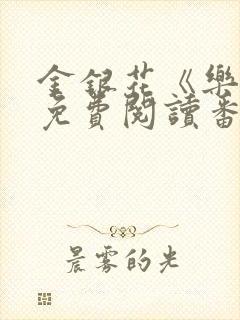 金銀花《樂
免費閱讀番
晨霧的光